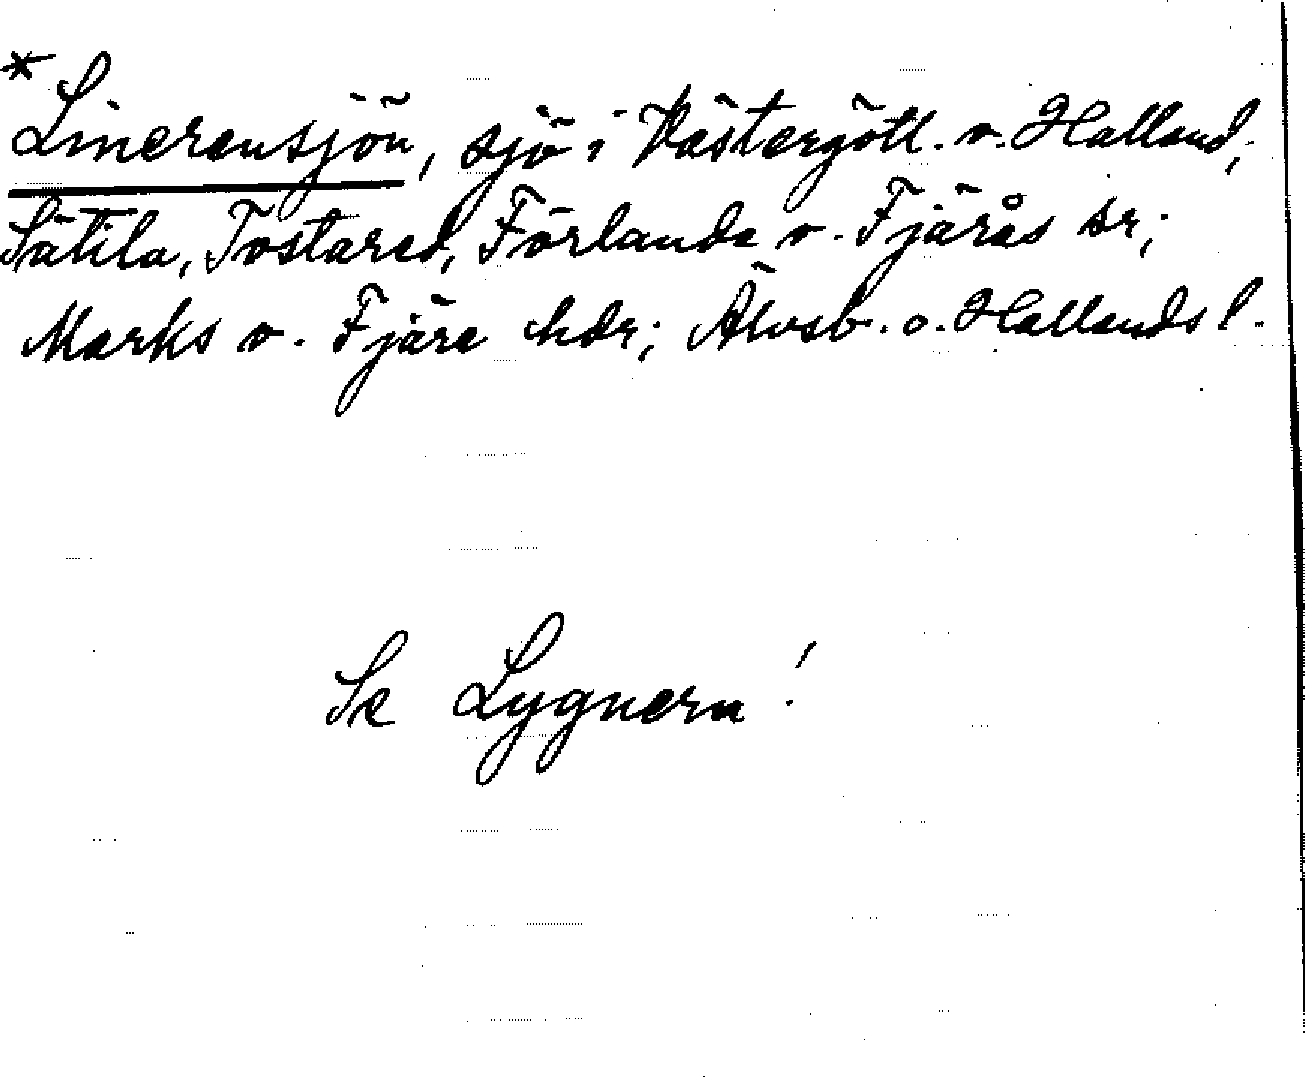 *
Linerensjön, sjö i Västergötl. o. Halland,
Sätila, Tostared, Förlanda o. Fjärås sr;
Marks o. Fjäre hdr; Älvsb. o. Hallands l.
Se Lygnern!